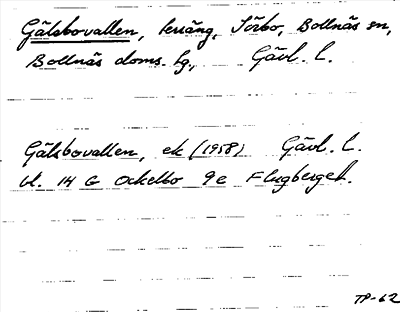 Gälsbovallen, terräng, Sörbo, Bollnäs sn,
Bollnäs doms. lg, Gävl. l.
Gälsbovallen, ek (1958) Gävl. l.
bl. 14 G Ockelbo 9e Flugberget.
TP-62